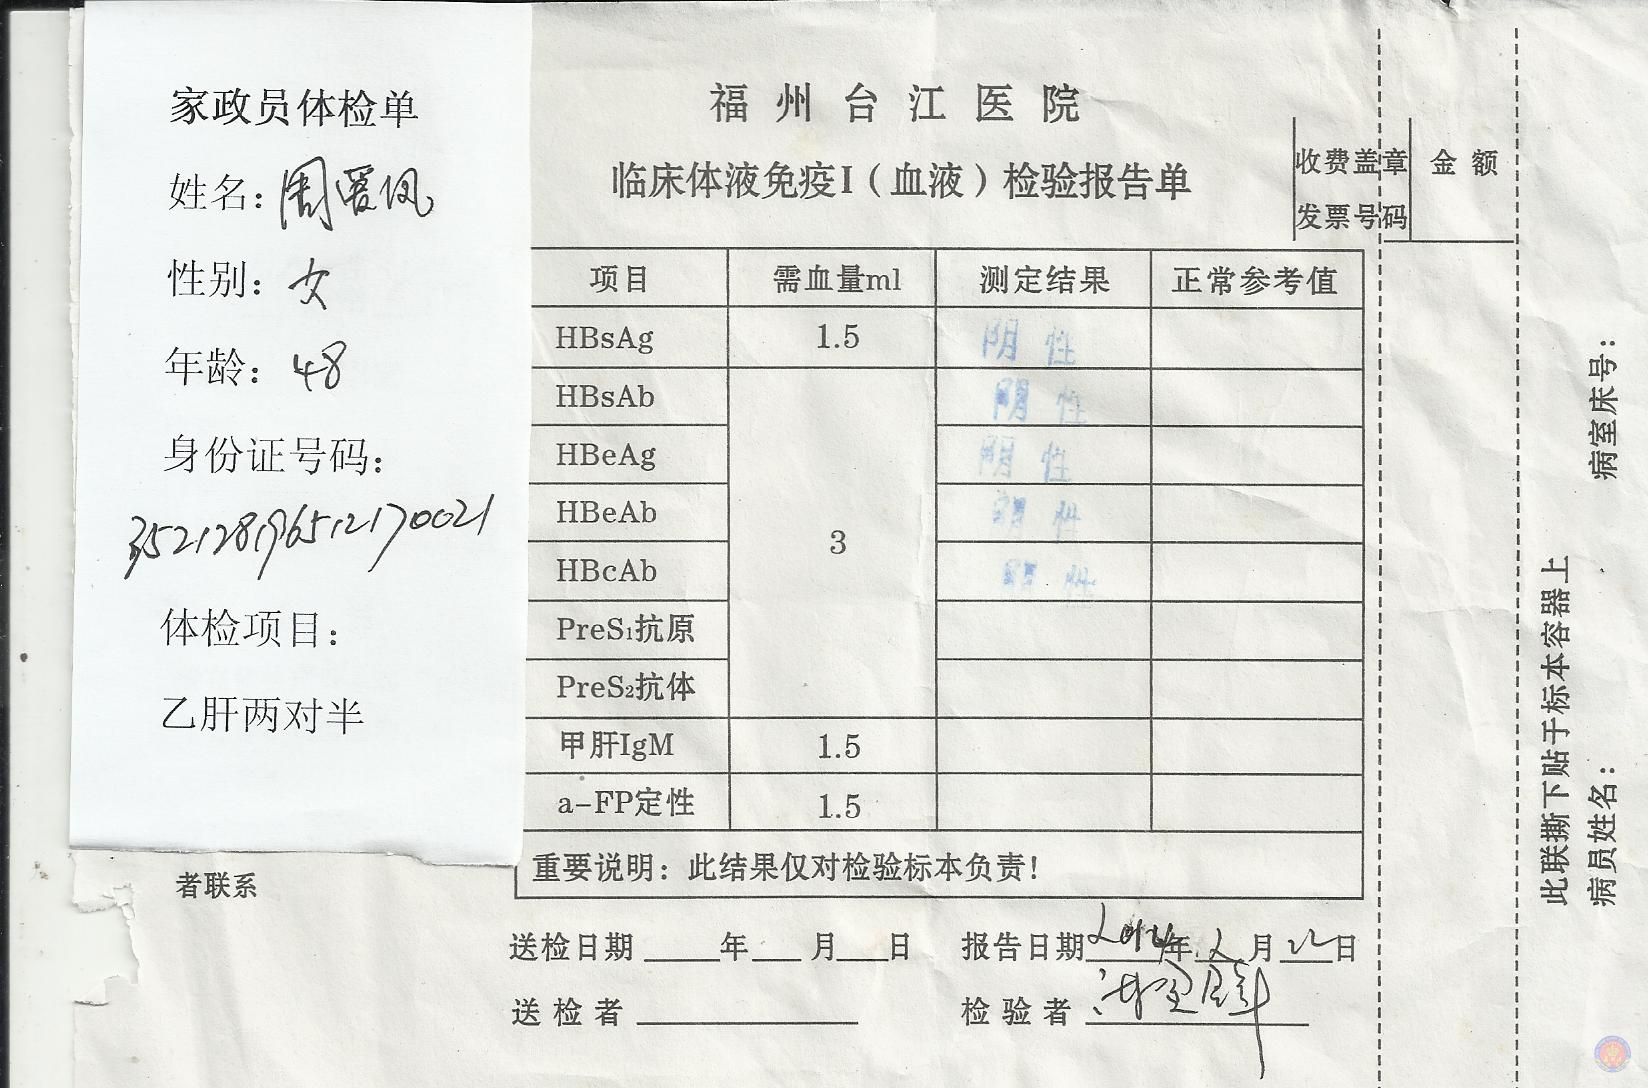 家政员体检单
姓名：周爱凤
性别：女
年龄：48
身份证号码：
352128196512170021
体检项目：
乙肝两对半
者联系
福州台江医院
临床体液免疫I（血液）检验报告单
收费盖章 金额
发票号码
项目 需血量ml 测定结果 正常参考值
HBsAg 1.5 阴性
HBsAb 阴性
HBeAg 阴性
HBeAb 阴性
3
HBcAb 阴性
PreS₁抗原
PreS₂抗体
甲肝IgM 1.5
a-FP定性 1.5
重要说明：此结果仅对检验标本负责！
送检日期 年 月 日 报告日期 2014年 2月 22日
送检者 检验者
此联撕下贴于标本容器上
病员姓名： 病室床号：